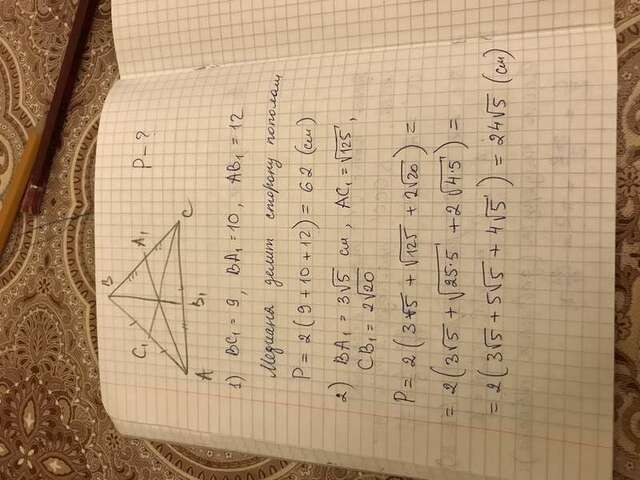 P-?
B
C₁
A₁
A
B₁
C
1) BC₁ = 9, BA₁ = 10, AB₁ = 12
Медиана делит сторону пополам
P = 2(9+10+12) = 62 (см)
2) BA₁ = 3√5 см, AC₁ = √125,
CB₁ = 2√20
P = 2(3√5 + √125 + 2√20) =
= 2(3√5 + √25·5 + 2√4·5) =
= 2(3√5 + 5√5 + 4√5) = 24√5 (см)